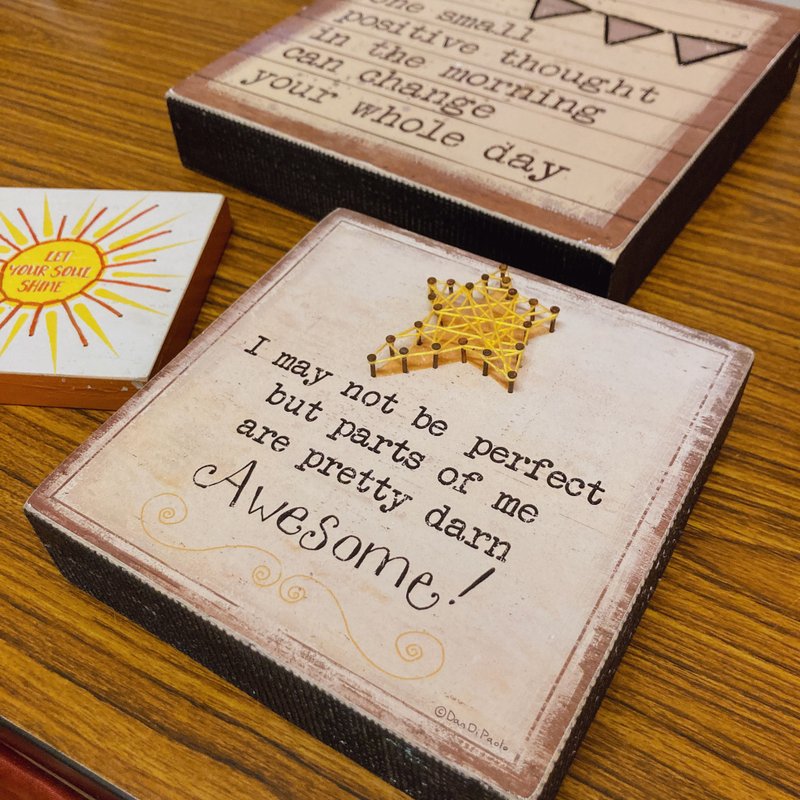 One small
positive thought
in the morning
can change
your whole day
LET
YOUR SOUL
SHINE
I may not be perfect
but parts of me
are pretty darn
Awesome!
©Dan DiPaolo